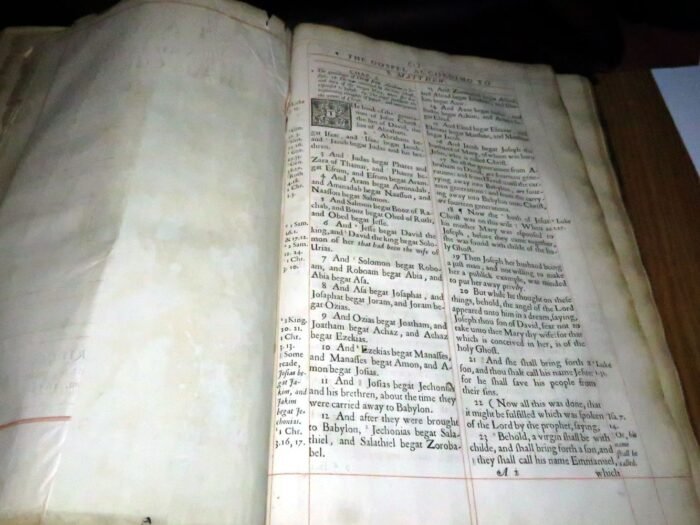 THE GOSPEL ACCORDING TO
S. MATTHEW.
CHAP. I.
He book of the genera-
tion of Jesus Christ,
the son of David, the
son of Abraham.
2 Abraham be-
gat Isaac, and Isaac begat Jacob,
and Jacob begat Judas and his bre-
thren.
3 And Judas begat Phares and
Zara of Thamar, and Phares be-
gat Esrom, and Esrom begat Aram.
4 And Aram begat Aminadab,
and Aminadab begat Naasson, and
Naasson begat Salmon.
5 And Salmon begat Booz of Ra-
chab, and Booz begat Obed of Ruth,
and Obed begat Jesse.
6 And Jesse begat David the
king, and David the king begat Solo-
mon of her that had been the wife of
Urias.
7 And Solomon begat Robo-
am, and Roboam begat Abia, and
Abia begat Asa.
8 And Asa begat Josaphat, and
Josaphat begat Joram, and Joram be-
gat Ozias.
9 And Ozias begat Joatham, and
Joatham begat Achaz, and Achaz
begat Ezekias.
10 And Ezekias begat Manasses,
and Manasses begat Amon, and A-
mon begat Josias.
11 And Josias begat Jechonias
and his brethren, about the time they
were carried away to Babylon.
12 And after they were brought
to Babylon, Jechonias begat Sala-
thiel, and Salathiel begat Zoroba-
bel.
1 Sam.
& 17.12.
2 Sam.
12. 24.
1 Chr.
3. 10.
2 King.
20. 21.
1 Chr.
3. 13.
Some
reade,
Josias be-
gat Ja-
kim, and
Jakim
begat Je-
chonias.
1 Chr.
3.16, 17.
14 And Azor begat Sadoc, and
15 And Eliud begat Eleazar, and
Eleazar begat Matthan, and Matthan
16 And Jacob begat Joseph the
husband of Mary, of whom was born
Jesus, who is called Christ.
17 So all the generations from A-
ying away into Babylon, are four-
teen generations: and from the carry-
ing away into Babylon unto Christ,
are fourteen generations.
18 ¶ Now the birth of Jesus
Christ was on this wise: When as
his mother Mary was espoused to
Joseph, before they came together,
she was found with childe of the ho-
ly Ghost.
19 Then Joseph her husband being
a just man, and not willing to make
her a publick example, was minded
to put her away privily.
20 But while he thought on these
things, behold, the angel of the Lord
appeared unto him in a dream, saying,
Joseph thou son of David, fear not to
take unto thee Mary thy wife: for that
which is conceived in her, is of the
holy Ghost.
21 And she shall bring forth a
son, and thou shalt call his name Jesus:
for he shall save his people from
their sins.
22 (Now all this was done, that
it might be fulfilled which was spoken
of the Lord by the prophet, saying,
23 Behold, a virgin shall be with
childe, and shall bring forth a son, and
they shall call his name Emmanuel,
A 2 which
Luke
1.27.
Luke
1.31.
Isa. 7.
14.
Or, his
name
shall be
called.